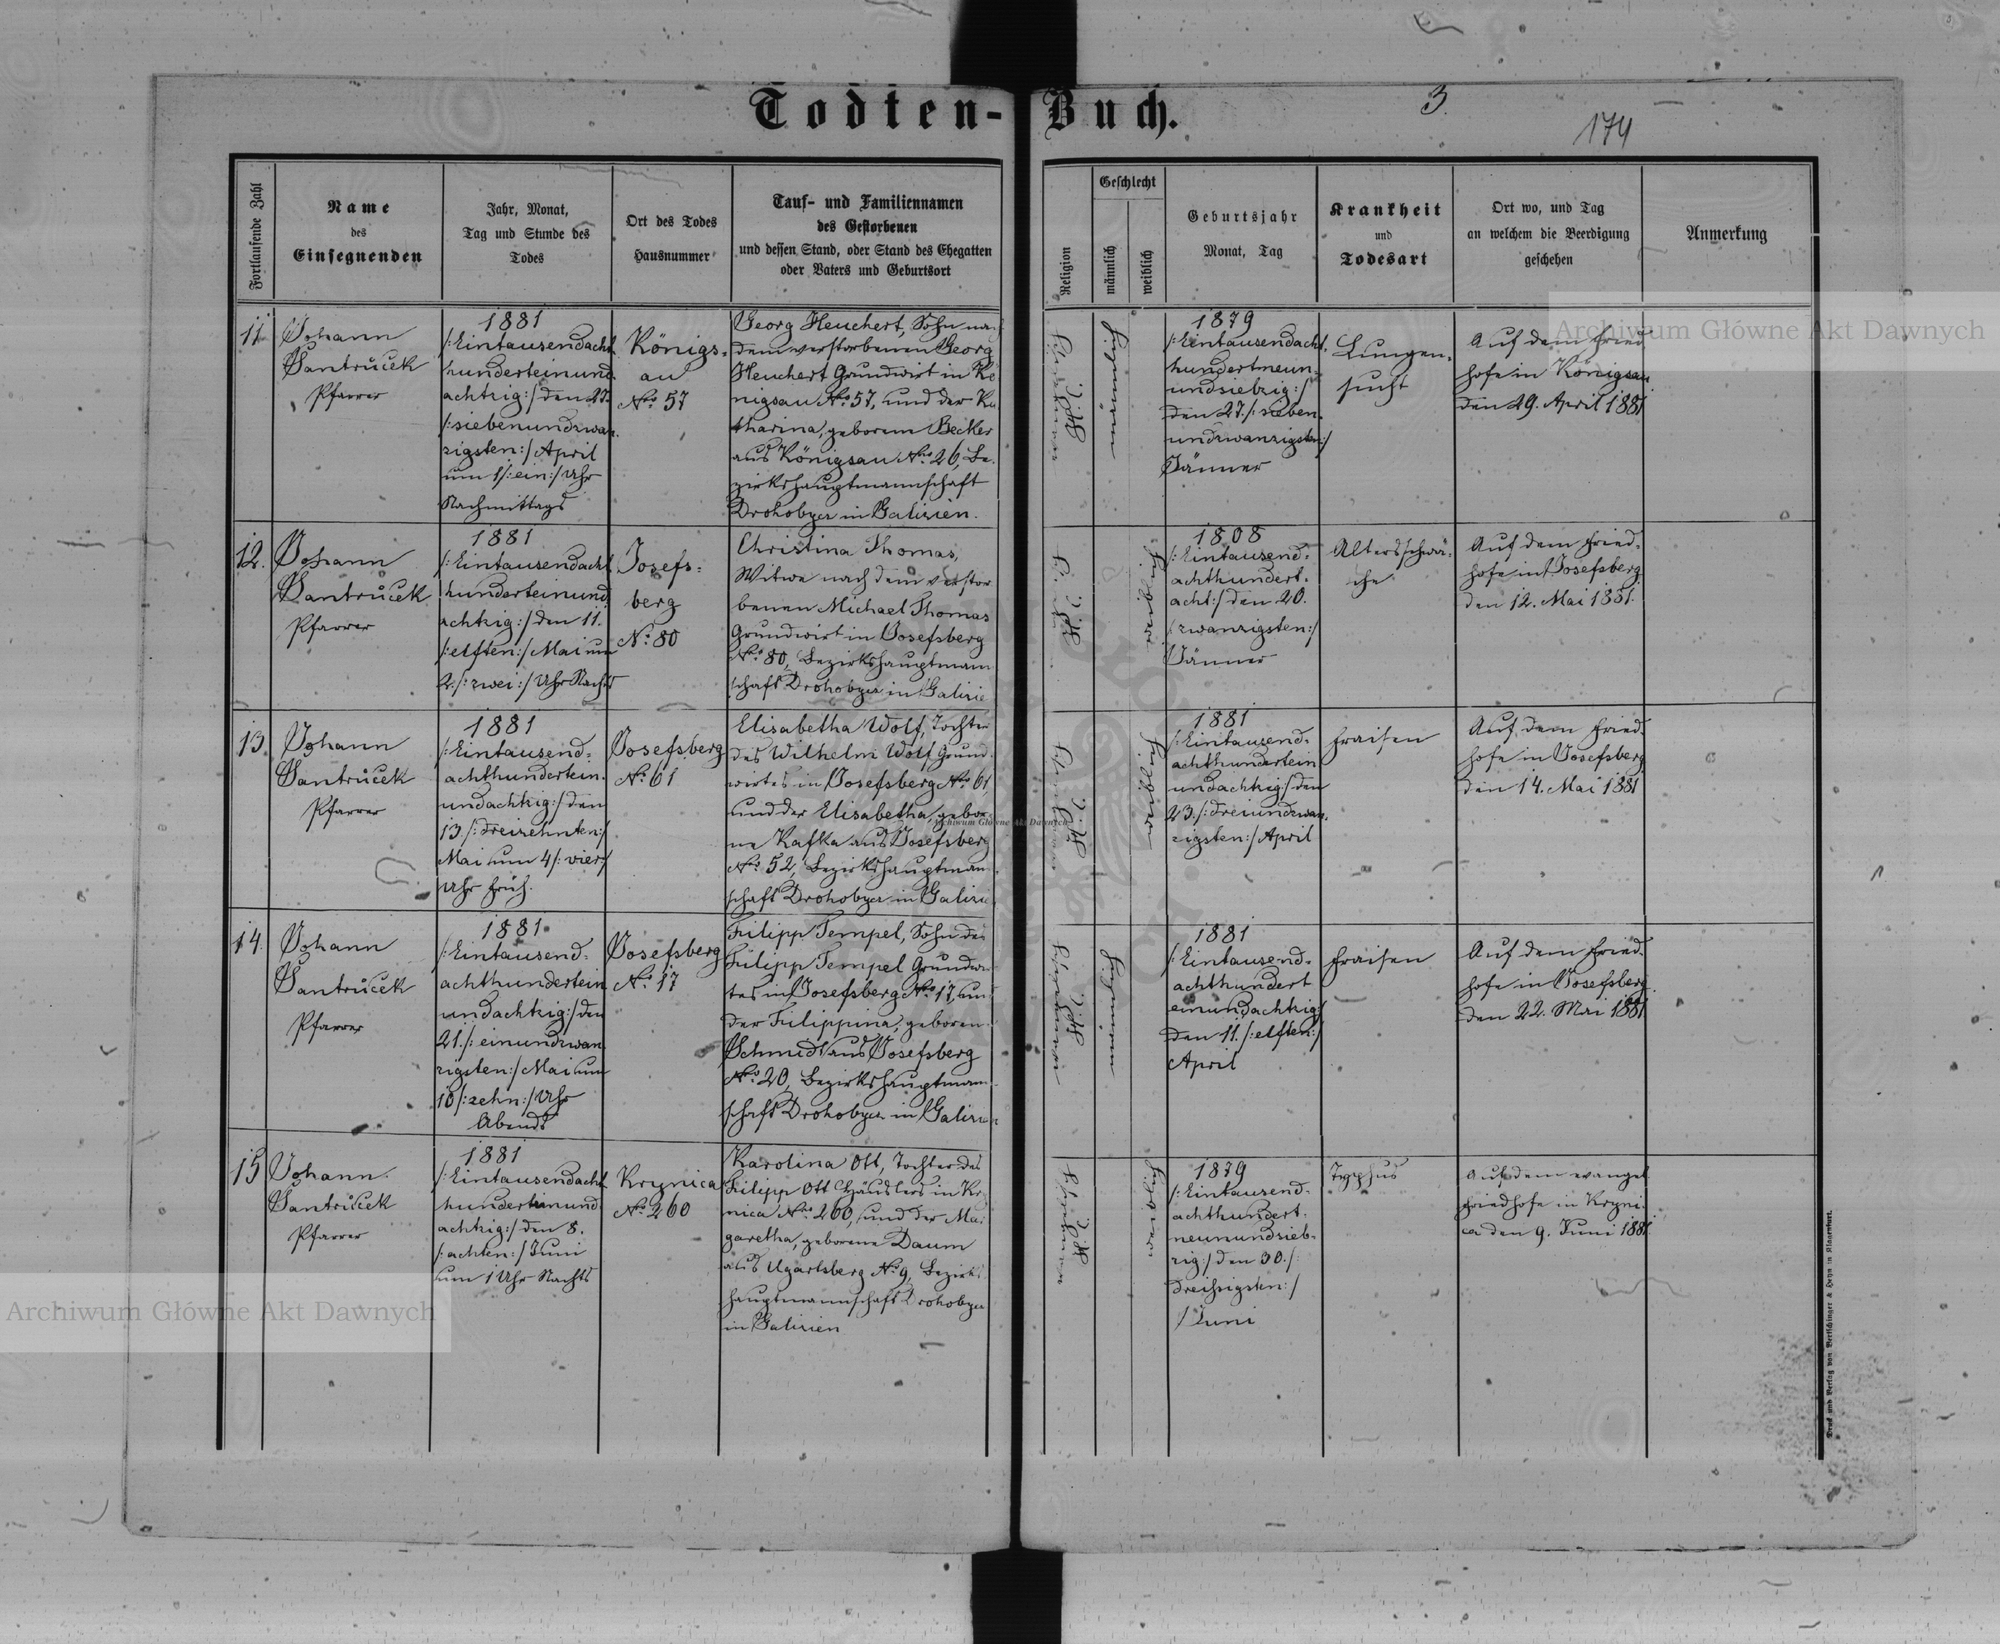 Todten-Buch.
3.
174
Fortlaufende Zahl
Name
des
Einsegnenden
Jahr, Monat,
Tag und Stunde des
Todes
Ort des Todes
Hausnummer
Tauf- und Familiennamen
des Gestorbenen
und dessen Stand, oder Stand des Ehegatten
oder Vaters und Geburtsort
Religion
Geschlecht
männlich
weiblich
Geburtsjahr
Monat, Tag
Krankheit
und
Todesart
Ort wo, und Tag
an welchem die Beerdigung
geschehen
Anmerkung
11.
Johann
Santrůček
Pfarrer
1881
/:Eintausendacht
hunderteinund
achtzig:/ den 27.
/:siebenundzwan
zigsten:/ April
um 1/:ein:/ Uhr
Nachmittags
Königs-
au
No. 57
Georg Heuchert, Sohn nach
dem verstorbenen Georg
Heuchert Grundwirt in Kö
nigsau No. 57, und der Ka
tharina, geborenen Becker
aus Königsau No. 26, Be-
zirkshauptmannschaft
Drohobycz in Galizien.
männlich
1879
/:Eintausendacht-
hundertneun-
undsiebzig:/
den 27./:sieben-
undzwanzigsten:/
Jänner
Lungen-
sucht
Auf dem Fried
hofe in Königsau
den 29. April 1881
12.
Johann
Santrůček
Pfarrer
1881
/:Eintausendacht
hunderteinund
achtzig:/ den 11.
/:elften:/ Mai um
2./:zwei:/ Uhr Nachts
Josefs-
berg
No. 80
Christina Thomas,
Witwe nach dem verstor
benen Michael Thomas
Grundwirt in Josefsberg
No. 80, Bezirkshauptmann
schaft Drohobycz in Galizie
weiblich
1808
/:Eintausend-
achthundert-
acht:/ den 20.
/:zwanzigsten:/
Jänner
Altersschwä-
che
Auf dem Fried-
hofe in Josefsberg
den 12. Mai 1881.
13.
Johann
Santrůček
Pfarrer
1881
/:Eintausend-
achthundertein-
undachtzig:/ den
13./:dreizehnten:/
Mai um 4/:vier:/
Uhr früh.
Josefsberg
No. 61
Elisabetha Wolf, Tochter
des Wilhelm Wolf Grund-
wirtes in Josefsberg No. 61
und der Elisabetha, gebor
ne Kafka aus Josefsberg
No. 52, Bezirkshauptman
schaft Drohobycz in Galizie
weiblich
1881
/:Eintausend-
achthundertein
undachtzig:/ den
23./:dreiundzwan-
zigsten:/ April
Fraisen
Auf dem Fried-
hofe in Josefsberg
den 14. Mai 1881
14.
Johann
Santrůček
Pfarrer
1881
/:Eintausend-
achthundertein
undachtzig:/ den
21./:einundzwan
zigsten:/ Mai um
10/:zehn:/ Uhr
Abends
Josefsberg
No. 17
Filipp Tempel, Sohn des
Filipp Tempel Grundwir
tes in Josefsberg No. 17, und
der Filippina, geboren-
Schmidt aus Josefsberg
No. 20, Bezirkshauptmann-
schaft Drohobycz in Galizien
männlich
1881
/:Eintausend-
achthundert
einundachtzig:/
den 11./:elften:/
April
Fraisen
Auf dem Fried-
hofe in Josefsberg
den 22. Mai 1881
15
Johann
Santrůček
Pfarrer
1881
/:Eintausendacht
hunderteinund
achtzig:/ den 8.
/:achten:/ Juni
um 1 Uhr Nachts
Krynica
No. 260
Karolina Ott, Tochter des
Filipp Ott Häuslers in Kry
nica No. 260, und der Mar
garetha, geborene Daum
aus Ugartsberg No. 9, Bezirks
hauptmannschaft Drohobycz
in Galizien
weiblich
1879
/:Eintausend-
achthundert-
neunundsieb-
zig:/ den 30./:
dreißigsten:/
Juni
Typhus
Auf dem evangel.
Friedhofe in Kryni-
ca den 9. Juni 1881
Druck und Verlag von Bertschinger & Heyn in Klagenfurt.
Archiwum Główne Akt Dawnych
Archiwum Główne Akt Dawnych
Archiwum Główne Akt Dawnych